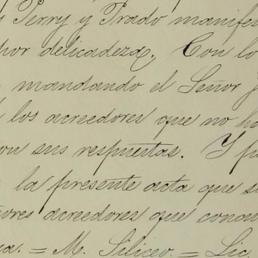 Perry y Prado manifes
por delicadeza, Con lo
mandando el Señor J
los acreedores que no ho
on sus respuestas. Y pa
la presente acta que s
ores acreedores que concu
a. = M. Siliceo. = Lic